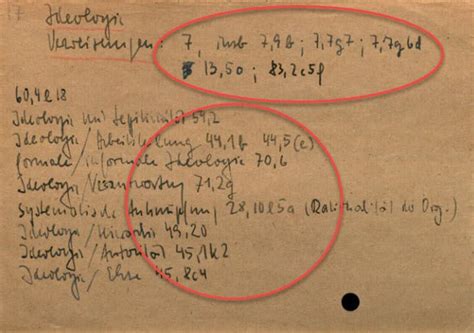 17 Ideologie
Verweisungen: 7, insb 7,9b; 7,7g7; 7,7g6d
13,5o; 83,2c5f
60,4e18
Ideologie und Legitimität 54,2
Ideologie/Arbeitsteilung 44,1b 44,5(e)
formale/informale Ideologie 70,6
Ideologie/Verantwortung 71,2g
Systematische Anknüpfung 28,10e5a (Rationalität der Org.)
Ideologie/Hierarchie 49,20
Ideologie/Autorität 45,1k2
Ideologie/Ehre 45,8c4